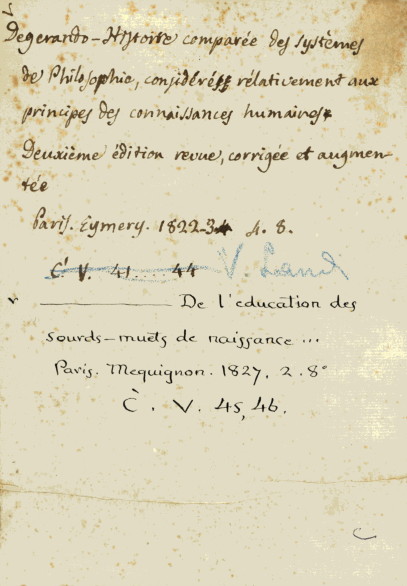 Degerando - Histoire comparée des systèmes
de Philosophie, considérés rélativement aux
principes des connaissances humaines
Deuxième édition revue, corrigée et augmen-
tée
Paris. Eymery. 1822-34 4. 8.
C. V. 41 ... 44 V.
De l'education des
sourds-muets de naissance ...
Paris. Mequignon. 1827. 2. 8°
C. V. 45, 46.